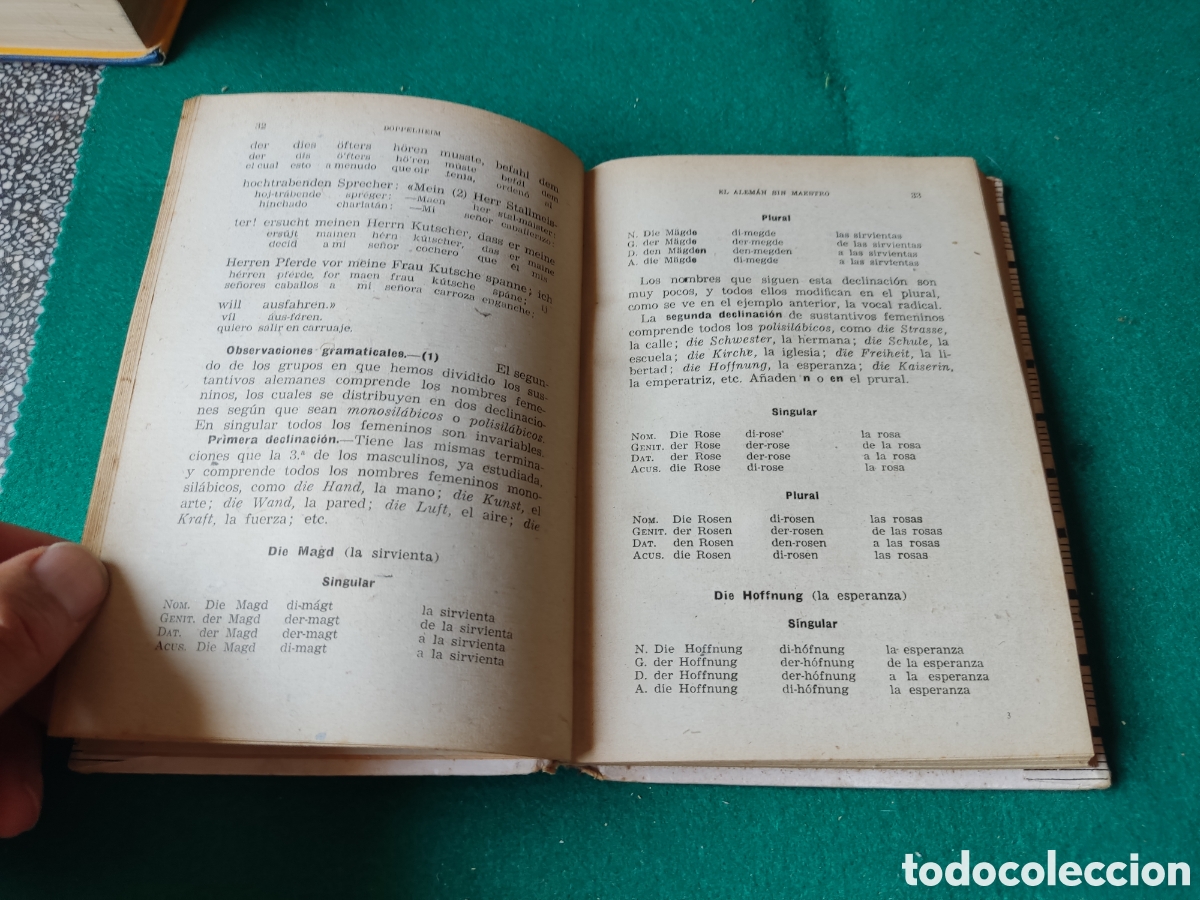 32 DOPPELHEIM
der dies öfters hören musste, befahl dem
der dis ö'fters hö'ren müste befál
el cual esto a menudo que oír tenía, ordenó al
hochtrabenden Sprecher: «Mein (2) Herr Stallmeis-
hoj-trábende spréger: —Maen her stal-máister
hinchado charlatán: —Mi señor caballerizo:
ter! ersucht meinen Herrn Kutscher, dass er meine
ersújt mainen hérn kútscher, das er maine
decid a mi señor cochero que él mis
Herren Pferde vor meine Frau Kutsche spanne; ich
hérren pferde, for maen frau kútsche spáne; ij
señores caballos a mi señora carroza enganche;
will ausfahren.»
vil áus-fáren.
quiero salir en carruaje.
Observaciones gramaticales.—(1) El segun-
do de los grupos en que hemos dividido los sus-
tantivos alemanes comprende los nombres feme-
ninos, los cuales se distribuyen en dos declinacio-
nes según que sean monosilábicos o polisilábicos.
En singular todos los femeninos son invariables.
Primera declinación.—Tiene las mismas termina-
ciones que la 3.ª de los masculinos, ya estudiada,
y comprende todos los nombres femeninos mono-
silábicos, como die Hand, la mano; die Kunst, el
arte; die Wand, la pared; die Luft, el aire; die
Kraft, la fuerza; etc.
Die Magd (la sirvienta)
Singular
NOM. Die Magd di-mágt la sirvienta
GENIT. der Magd der-magt de la sirvienta
DAT. der Magd der-magt a la sirvienta
ACUS. Die Magd di-magt a la sirvienta
EL ALEMÁN SIN MAESTRO 33
Plural
N. Die Mägde di-megde las sirvientas
G. der Mägde der-megde de las sirvientas
D. den Mägden den-megden a las sirvientas
A. die Mägde di-megde a las sirvientas
Los nombres que siguen esta declinación son
muy pocos, y todos ellos modifican en el plural,
como se ve en el ejemplo anterior, la vocal radical.
La segunda declinación de sustantivos femeninos
comprende todos los polisilábicos, como die Strasse,
la calle; die Schwester, la hermana; die Schule, la
escuela; die Kirche, la iglesia; die Freiheit, la li-
bertad; die Hoffnung, la esperanza; die Kaiserin,
la emperatriz, etc. Añaden n o en el prural.
Singular
NOM. Die Rose di-rose la rosa
GENIT. der Rose der-rose de la rosa
DAT. der Rose der-rose a la rosa
ACUS. die Rose di-rose la rosa
Plural
NOM. Die Rosen di-rosen las rosas
GENIT. der Rosen der-rosen de las rosas
DAT. den Rosen den-rosen a las rosas
ACUS. die Rosen di-rosen las rosas
Die Hoffnung (la esperanza)
Síngular
N. Die Hoffnung di-hófnung la esperanza
G. der Hoffnung der-hófnung de la esperanza
D. der Hoffnung der-hófnung a la esperanza
A. die Hoffnung di-hófnung la esperanza
3
todocoleccion